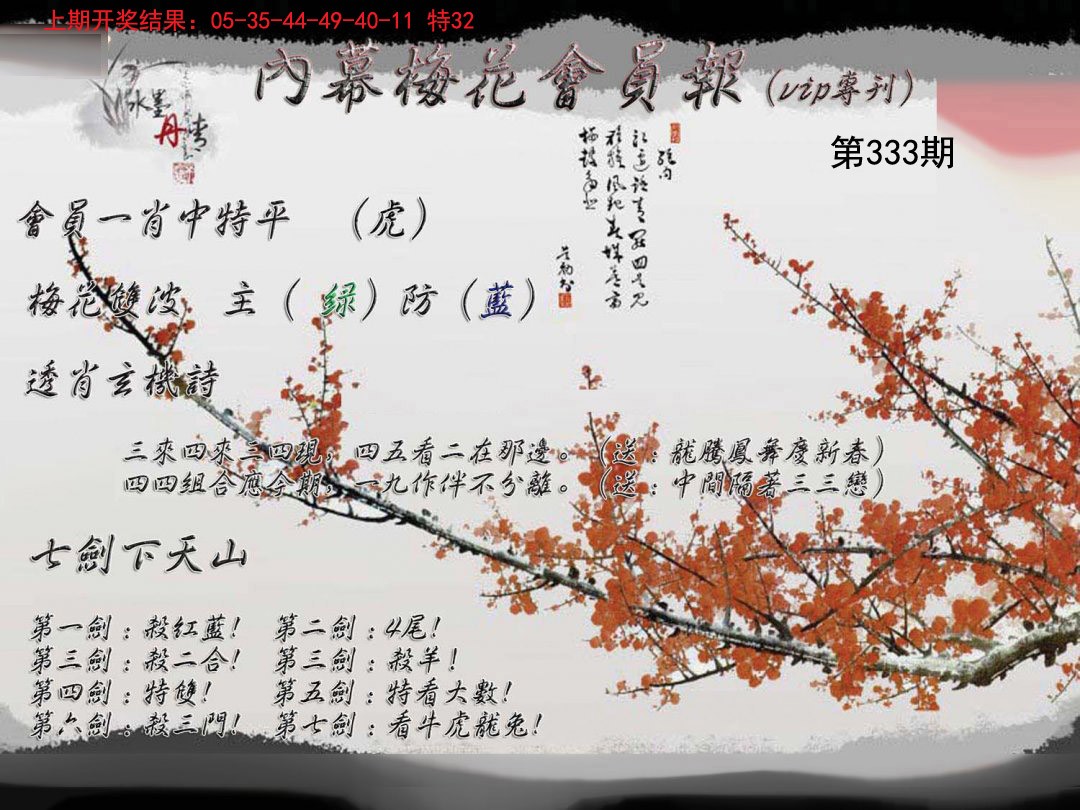 上期开奖结果：05-35-44-49-40-11 特32
內幕梅花會員報（vip專刊）
水墨丹青
第333期
會員一肖中特平 （虎）
梅花雙波 主（绿）防（藍）
透肖玄機詩
三來四來三四現，四五看二在那邊。（送：龍騰鳳舞慶新春）
四四組合應今期，一九作伴不分離。（送：中間隔著三三戀）
七劍下天山
第一劍：殺紅藍！ 第二劍：4尾！
第三劍：殺二合！ 第三劍：殺羊！
第四劍：特雙！ 第五劍：特看大數！
第六劍：殺三門！ 第七劍：看牛虎龍兔！